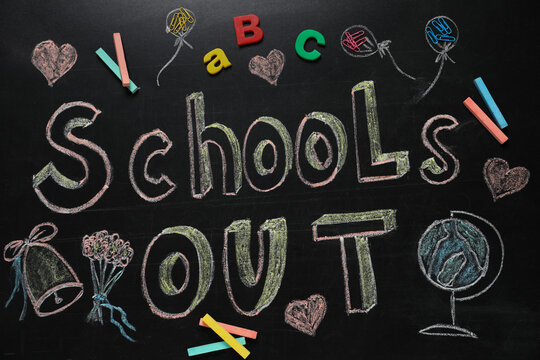 aBc
SchooLs
OUT